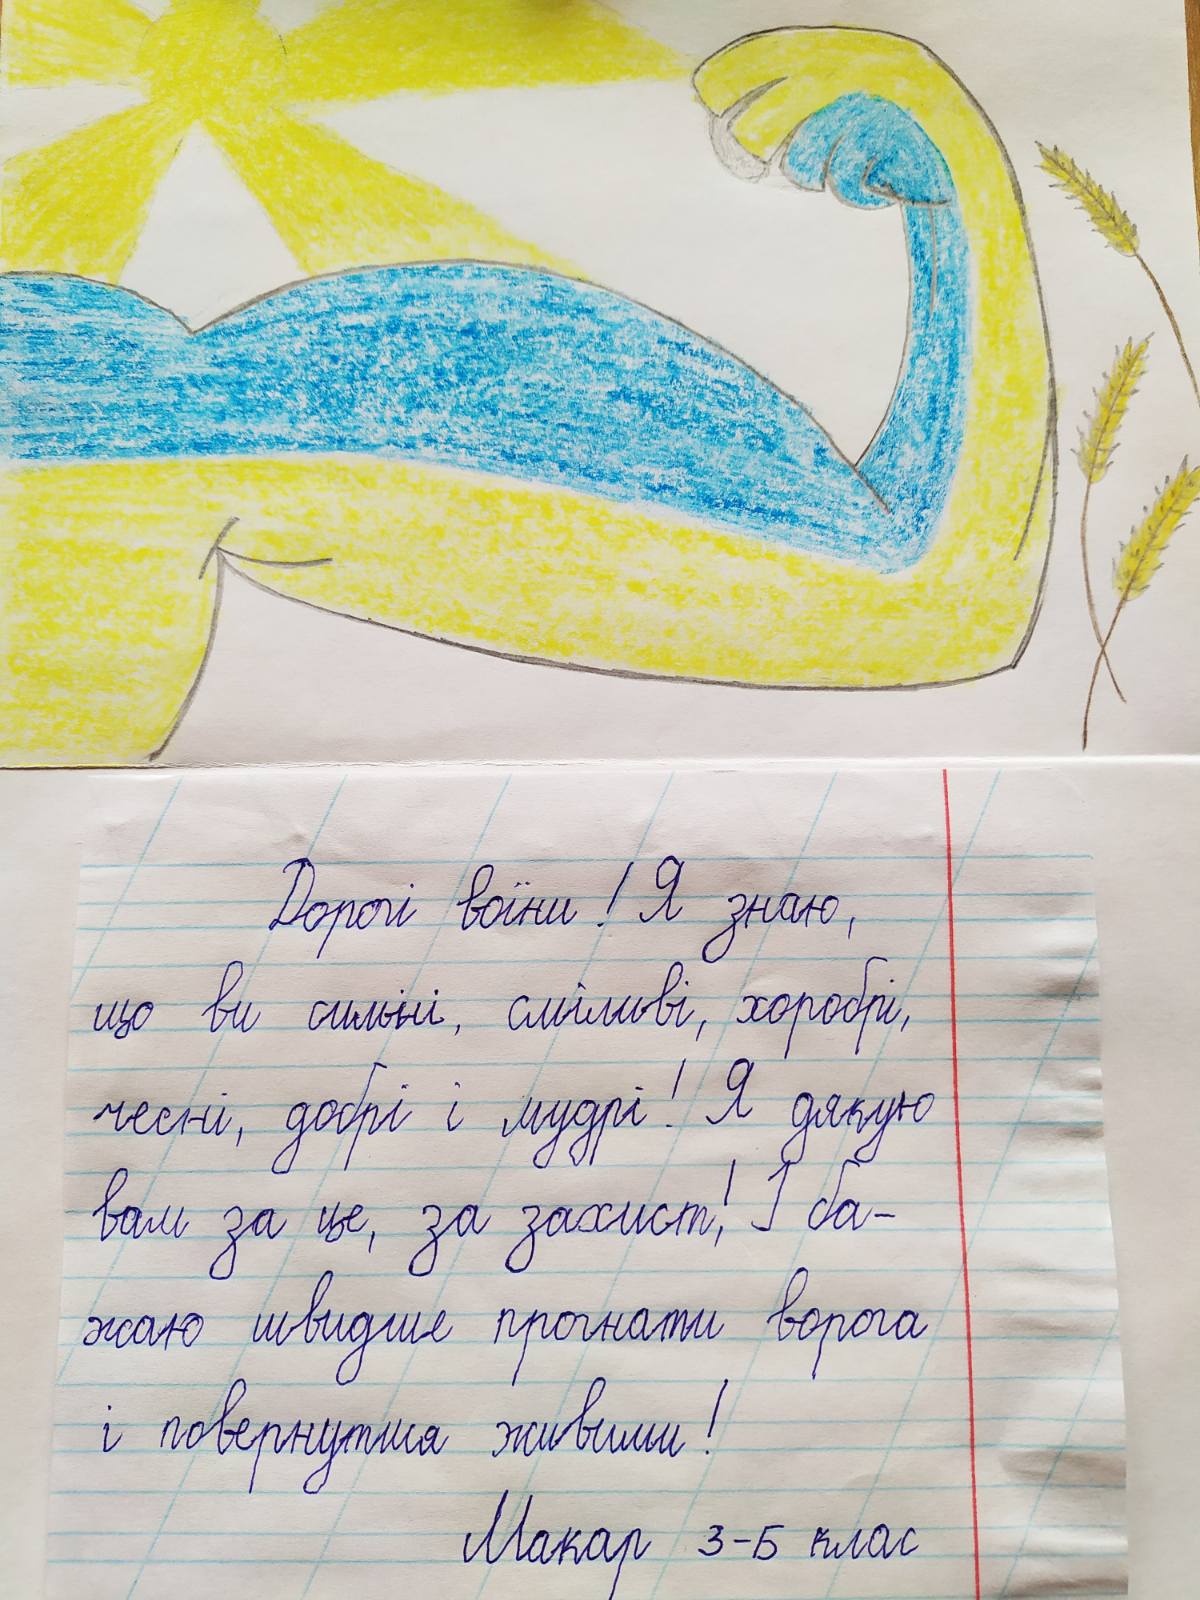 Дорогі воїни! Я знаю,
що ви сильні, сміливі, хоробрі,
чесні, добрі і мудрі! Я дякую
вам за це, за захист! І ба-
жаю швидше прогнати ворога
і повернутися живими!
Макар 3-Б клас